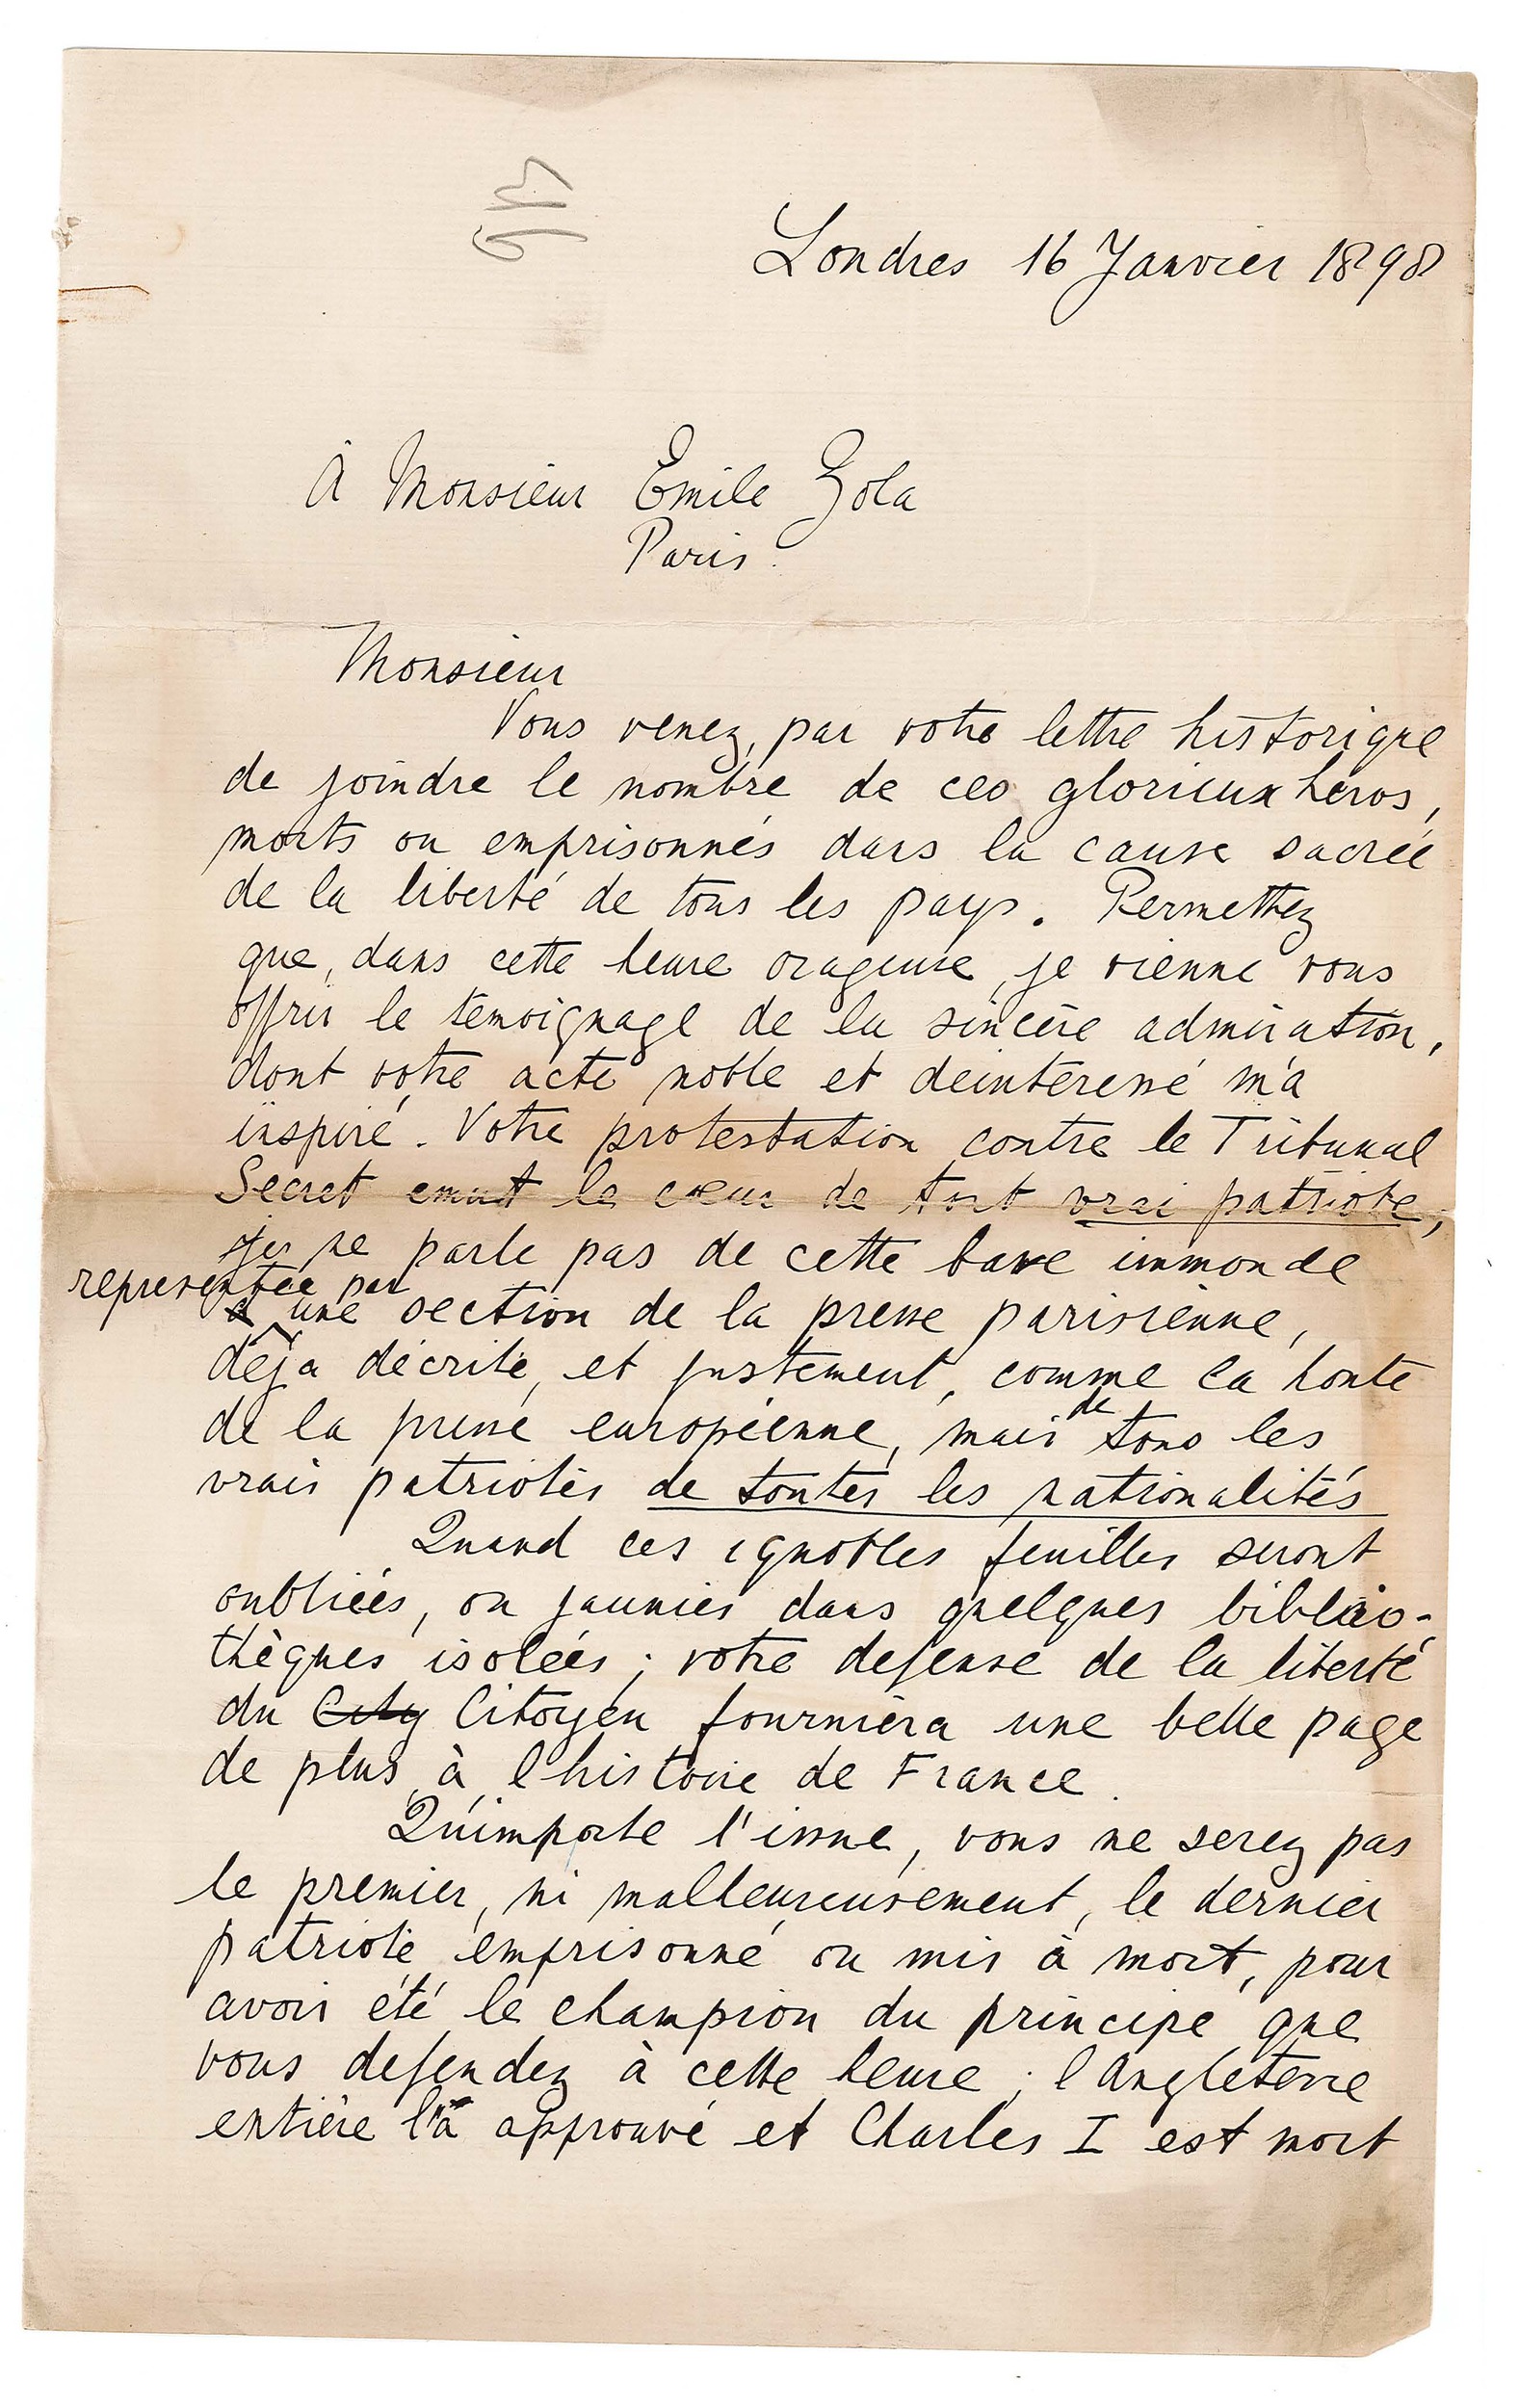 Londres 16 Janvier 1898
À Monsieur Émile Zola
Paris.
Monsieur
Vous venez, par votre lettre historique
de joindre le nombre de ces glorieux héros,
morts ou emprisonnés dans la cause sacrée
de la liberté de tous les pays. Permettez
que, dans cette heure orageuse, je vienne vous
offrir le témoignage de la sincère admiration,
dont votre acte noble et deintéressé m'a
inspiré. Votre protestation contre le Tribunal
Secret emut le cœur de tout vrai patriote,
je ne parle pas de cette bave immonde
representée par
une section de la presse parisienne,
déjà décrite, et justement, comme la honte
de la presse européenne, mais de tous les
vrais patriotes de toutes les nationalités
Quand ces ignobles feuilles seront
oubliées, ou jaunies dans quelques biblio-
thèques isolées; votre defense de la liberté
du City Citoyen fourniera une belle page
de plus à l'histoire de France.
Qu'importe l'issue, vous ne serez pas
le premier, ni malheureusement, le dernier
patriote emprisonné ou mis à mort, pour
avoir été le champion du principe que
vous defendez à cette heure; l'Angleterre
entière l'a approuvé et Charles I est mort